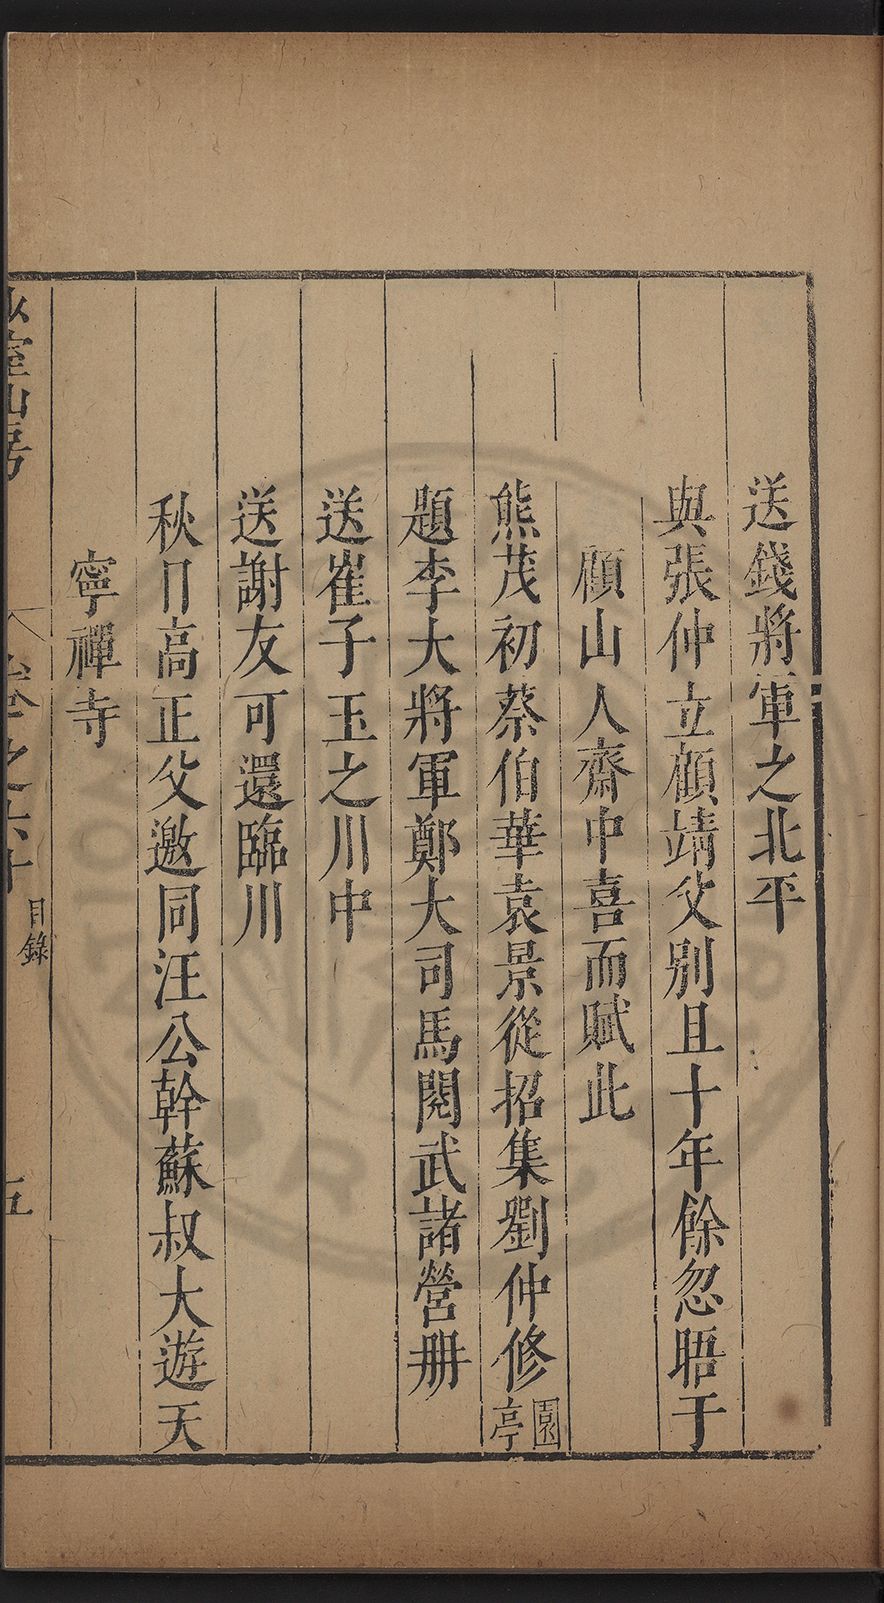 送錢將軍之北平
與張仲立顧靖父別且十年餘忽晤于
顧山人齋中喜而賦此
熊茂初蔡伯華袁景從招集劉仲修園亭
題李大將軍鄭大司馬閱武諸營册
送崔子玉之川中
送謝友可還臨川
秋日高正父邀同汪公幹蘇叔大遊天
寧禪寺
室山房
卷之六十
目錄
五